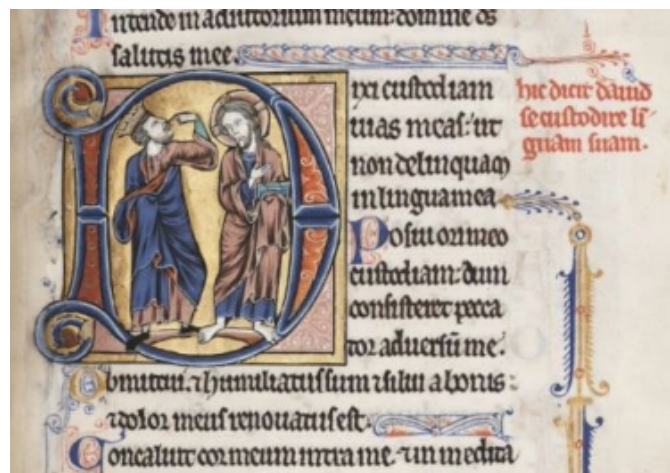 Intende in adiutorium meum: domine ds
salutis mee.
Dixi custodiam
uias meas: ut
non delinquam
in lingua mea
Posui ori meo
custodiam: dum
consisteret pecca
tor aduersū me.
Obmutui. ⁊ humiliatus sum ⁊ silui a bonis:
⁊ dolor meus renouatus est.
Concaluit cor meum intra me. ⁊ in medita
hic dicit dauid
se custodire lī
guam suam.